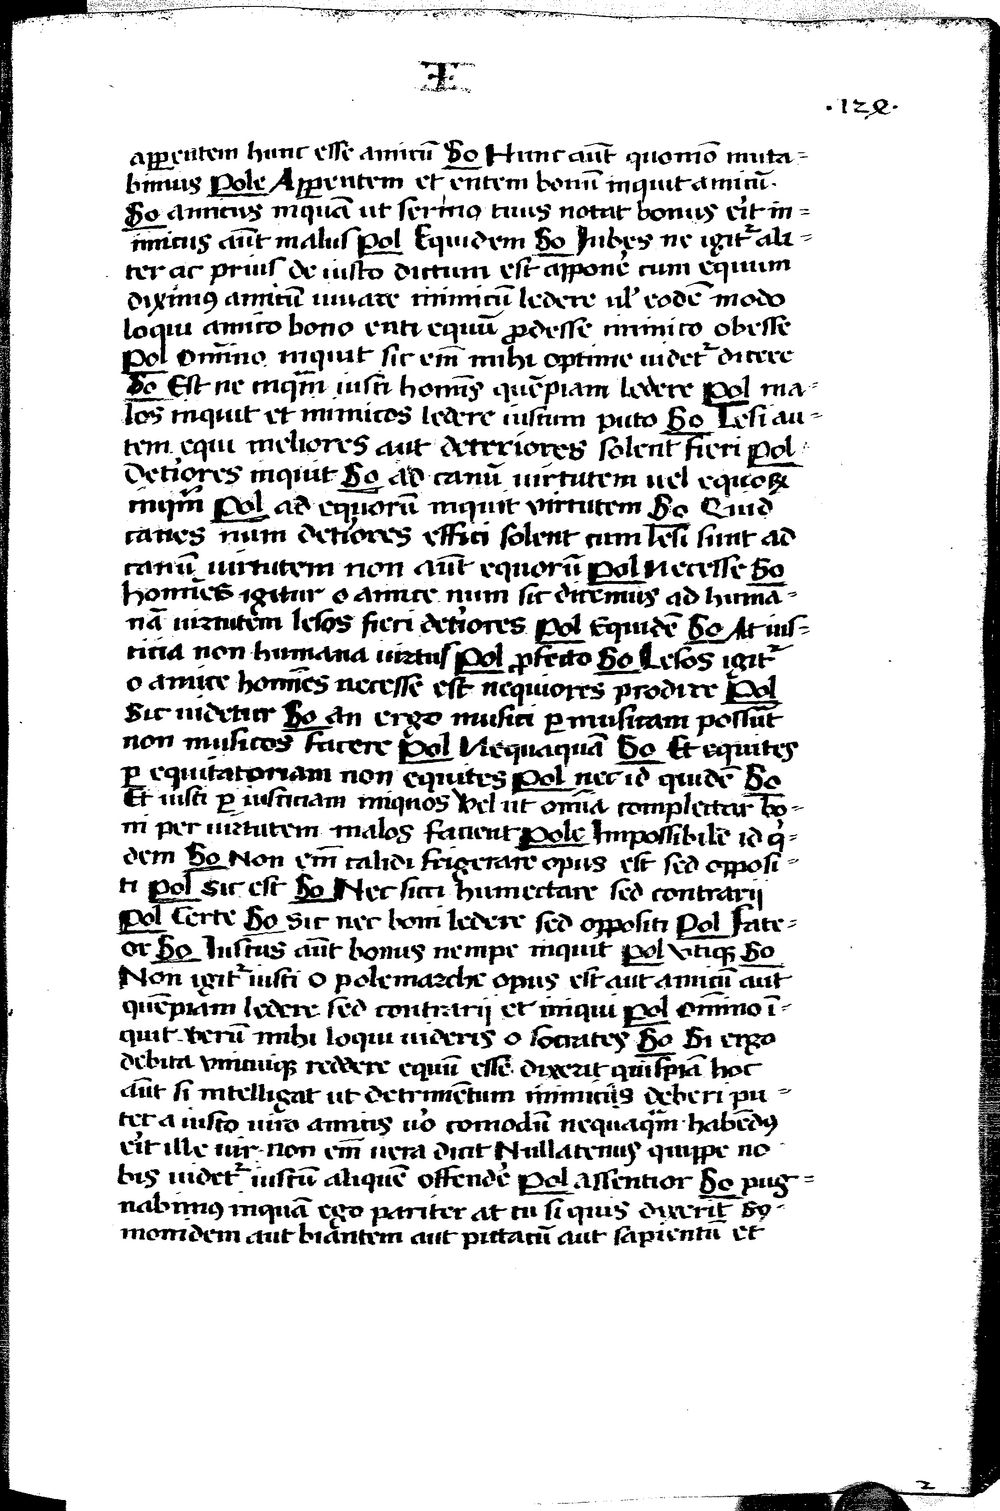 ·129·
apparentem hunc esse amicū So Hunc aūt quomō muta=
bimus Pole Apparentem et entem bonū inquit amicū.
So amicus inquā ut sermo tuus notat bonus erit in=
imicus aūt malus Pol Equidem So Jubes ne igit᷑ ali=
ter ac prius de iusto dictum est apponē cum equum
diximꝰ amicū iuuare inimicū ledere ul' eodē modo
loqui amico bono enti equū ꝓdesse inimico obesse
Pol omīno inquit sic em̄ mihi optime uidet᷑ dicere
So Est ne inqm̄ iusti homīs quēpiam ledere Pol ma=
los inquit et inimicos ledere iustum puto So Lesi au=
tem equi meliores aut deteriores solent fieri Pol
detiores inquit So ad canū uirtutem uel equoꝝ
inqm̄ Pol ad equorū inquit virtutem So Quid
canes num detiores effici solent cum lesi sunt ad
canū uirtutem non aūt equorū Pol Necesse So
homīes igitur o amice num sic dicemus ad huma=
nā uirtutem lesos fieri detiores Pol Equidē So At ius=
ticia non humana uirtus Pol ꝓfecto So Lesos igit᷑
o amice homīes necesse est nequiores prodire Pol
Sic uidetur So an ergo musici ꝑ musicam possūt
non musicos facere Pol Nequaquā So Et equites
ꝑ equitatoriam non equites Pol nec id quidē So
Et iusti ꝑ iusticiam iniquos Vel ut omīa complectar bo=
ni per uirtutem malos facient Pole Impossibile id q=
dem So Non em̄ calidi frigerare opus est sed opposi=
ti Pol Sic est So Nec sicci humectare sed contrarij
Pol Certe So Sic nec boni ledere sed oppositi Pol Fate=
or So Iustus aūt bonus nempe inquit Pol Vtiqꝫ So
Non igit᷑ iusti o polemarche opus est aut amicū aut
quēpiam ledere sed contrarij et iniqui Pol omīno ī=
quit Verū mihi loqui uideris o socrates So Si ergo
debita vnicuiqꝫ reddere equū esse dixerit quispiā hoc
aūt si intelligat ut detrimētum inimicis deberi pu=
tet a iusto uiro amicis uo comodū nequaqm̄ habēdꝰ
erit ille uir non em̄ uera dicit Nullatenus quippe no
bis uidet᷑ iustū aliquē offende Pol assentior So pug=
nabimꝰ inquā ego pariter at tu si quis dixerit Sy=
monidem aut biantem aut pittacū aut sapientū et
2